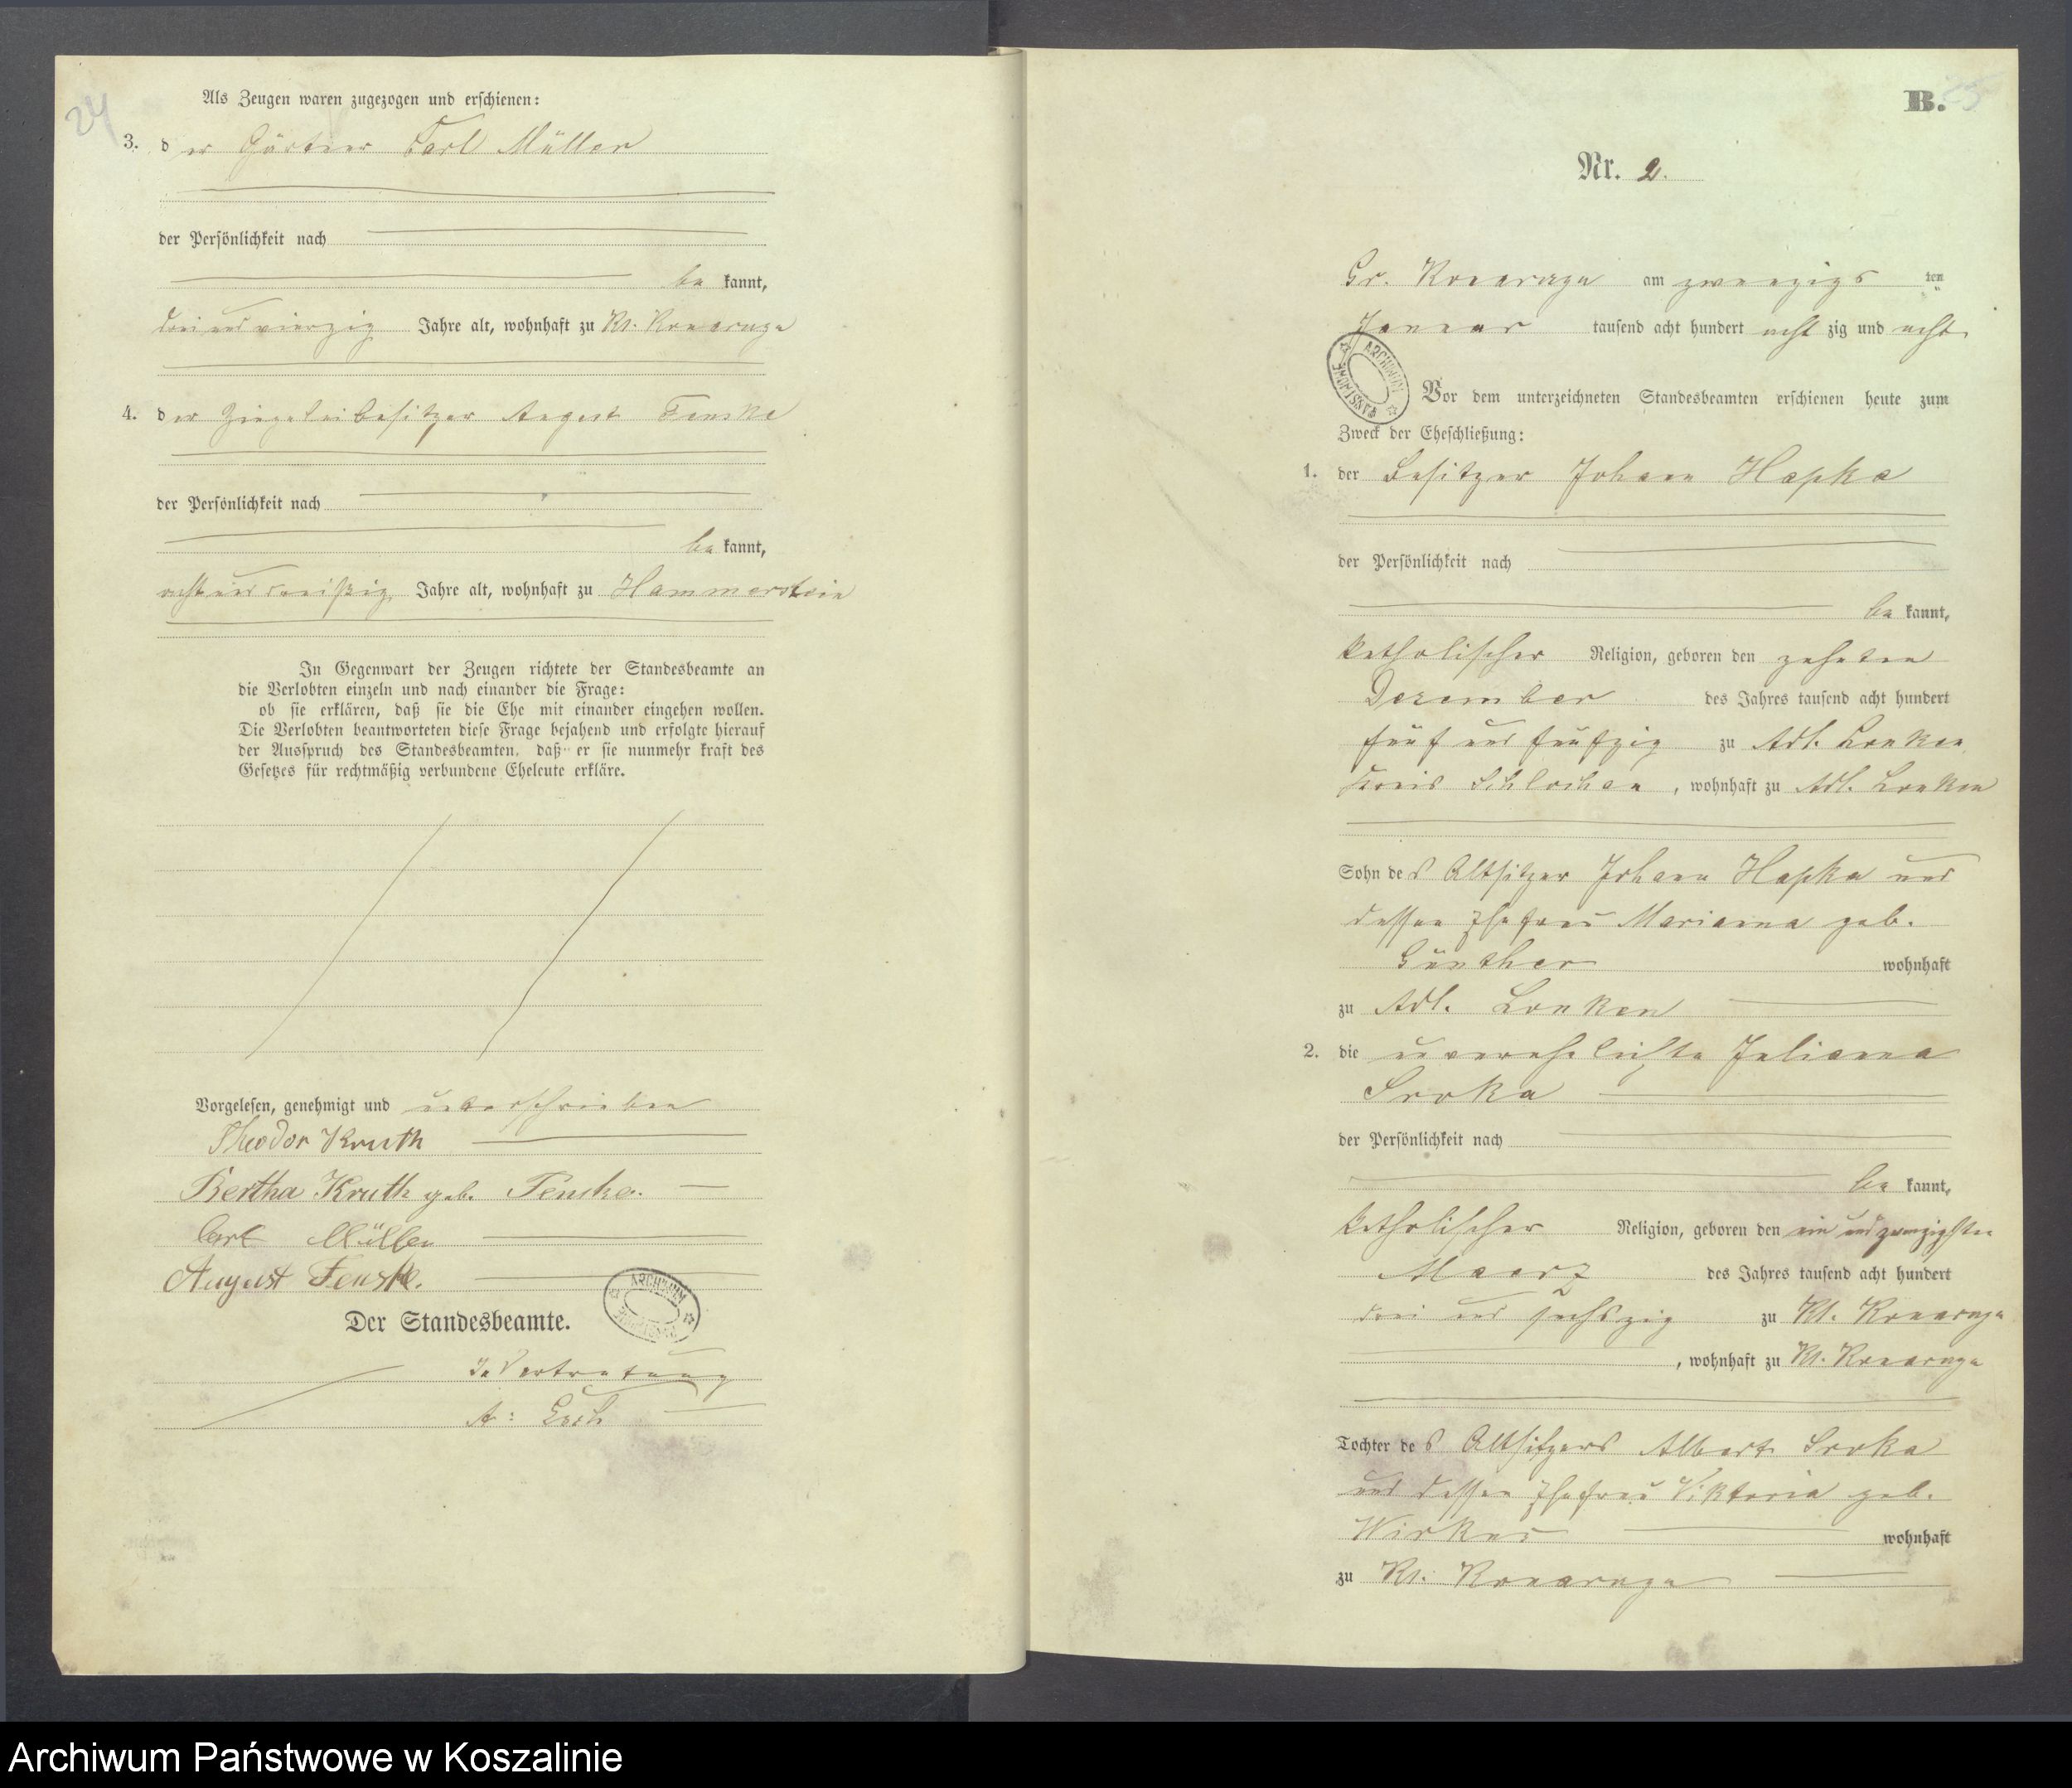 24
Als Zeugen waren zugezogen und erschienen:
3. der Gärtner Carl Müller
der Persönlichkeit nach
bekannt,
drei und vierzig Jahre alt, wohnhaft zu Kl. Konarzyn
4. der Ziegeleibesitzer August Fenske
der Persönlichkeit nach
bekannt,
acht und dreißig Jahre alt, wohnhaft zu Hammerstein
In Gegenwart der Zeugen richtete der Standesbeamte an
die Verlobten einzeln und nach einander die Frage:
ob sie erklären, daß sie die Ehe mit einander eingehen wollen.
Die Verlobten beantworteten diese Frage bejahend und erfolgte hierauf
der Ausspruch des Standesbeamten, daß er sie nunmehr kraft des
Gesetzes für rechtmäßig verbundene Eheleute erkläre.
Vorgelesen, genehmigt und unterschrieben
Theodor Kruth
Bertha Kruth geb. Fenske.
Carl Müller
August Fenske.
ARCHIWUM
Der Standesbeamte.
In Vertretung
A:
B.
25
Nr. 2.
Gr. Konarzyn am zwanzigsten
Januar tausend acht hundert achtzig und acht.
ARCHIWUM
Vor dem unterzeichneten Standesbeamten erschienen heute zum
Zweck der Eheschließung:
1. der Besitzer Johann Hapka
der Persönlichkeit nach
bekannt,
katholischer Religion, geboren den zehnten
Dezember des Jahres tausend acht hundert
fünf und fünfzig zu Adl. Lonken
Kreis Schlochau, wohnhaft zu Adl. Lonken
Sohn des Altsitzer Johann Hapka und
dessen Ehefrau Marianna geb.
Günther wohnhaft
zu Adl. Lonken
2. die unverehelichte Julianna
Sroka
der Persönlichkeit nach
bekannt,
katholischer Religion, geboren den ein und zwanzigsten
Maerz des Jahres tausend acht hundert
drei und sechszig zu Kl. Konarzyn
, wohnhaft zu Kl. Konarzyn
Tochter des Altsitzers Albert Sroka
und dessen Ehefrau Viktoria geb.
Wirkus wohnhaft
zu Kl. Konarzyn
Archiwum Państwowe w Koszalinie